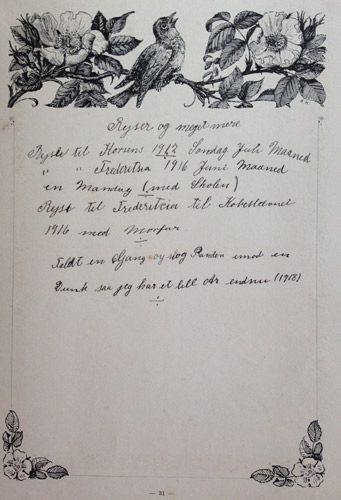 Rejser og meget mere
Rejste til Horsens 1912 Søndag Juli Maaned
" " Fredericia 1916 Juni Maaned
en Mandag (med Skolen)
Rejst til Fredericia til
1916 med Morfar
Faldt en Gang og slog Panden imod en
Dunk saa jeg har et lill Ar endnu (1918)
— 31 —